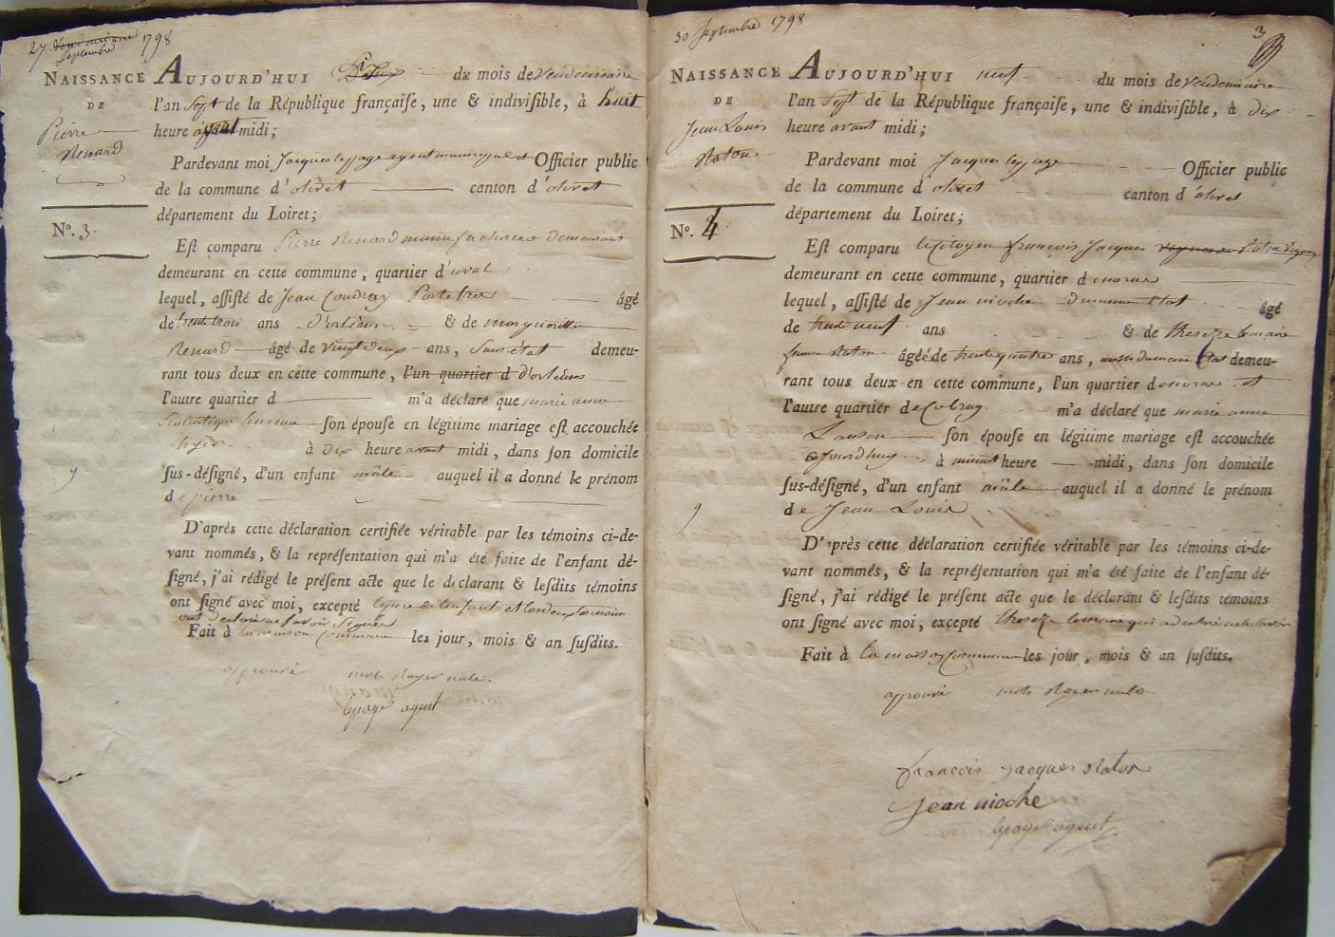 27 Septembre 1798
NAISSANCE
DE
Pierre
Renard
N°. 3.
AUJOURD'HUI du mois de vendemiaire
l'an Sept de la République françaiſe, une & indiviſible, à huit
heure midi;
Pardevant moi Jacques lepage agent municipal et Officier public
de la commune d'olivet canton d'olivet
département du Loiret;
Eſt comparu Pierre Renard demeurant
demeurant en cette commune, quartier d'
lequel, aſſiſté de Jean Coudray âgé
de trente trois ans & de
Renard âgé de vingt deux ans, Sans état demeu-
rant tous deux en cette commune, l'un quartier d d'orléans
l'autre quartier d m'a déclaré que marie anne
ſon épouſe en légitime mariage eſt accouchée
hyer à dix heure avant midi, dans ſon domicile
ſus-déſigné, d'un enfant mâle auquel il a donné le prénom
de pierre
D'après cette déclaration certifiée véritable par les témoins ci-de-
vant nommés, & la repréſentation qui m'a été faite de l'enfant dé-
ſigné, j'ai rédigé le préſent acte que le déclarant & leſdits témoins
ont ſigné avec moi, excepté le père de l'enfant et les deux temoins
ont declaré ne savoir Signer
Fait à la maison Commune les jour, mois & an ſuſdits.
approuvé mots rayés nuls.
lepage agent
30 Septembre 1798
3
NAISSANCE
DE
Jean Louis
Raton
N°. 4
AUJOURD'HUI neuf du mois de vendemiaire
l'an Sept de la République françaiſe, une & indiviſible, à dix
heure avant midi;
Pardevant moi Jacques lepage Officier public
de la commune d olivet canton d'olivet
département du Loiret;
Eſt comparu le Citoyen françois Jacques Raton
demeurant en cette commune, quartier d
lequel, aſſiſté de Jean nioche âgé
de trente neuf ans & de thereze
femme Raton âgéé de trente quatre ans, demeu-
rant tous deux en cette commune, l'un quartier d et
l'autre quartier de m'a déclaré que marie anne
ſon épouſe en légitime mariage eſt accouchée
à minuit heure midi, dans ſon domicile
ſus-déſigné, d'un enfant mâle auquel il a donné le prénom
de Jean Louis
D'après cette déclaration certifiée véritable par les témoins ci-de-
vant nommés, & la repréſentation qui m'a été faite de l'enfant dé-
ſigné, j'ai rédigé le préſent acte que le déclarant & leſdits témoins
ont ſigné avec moi, excepté thereze qui a declaré
Fait à la maison Commune les jour, mois & an ſuſdits.
approuvé mots rayés nuls
françois jacques Raton
Jean nioche
lepage agent